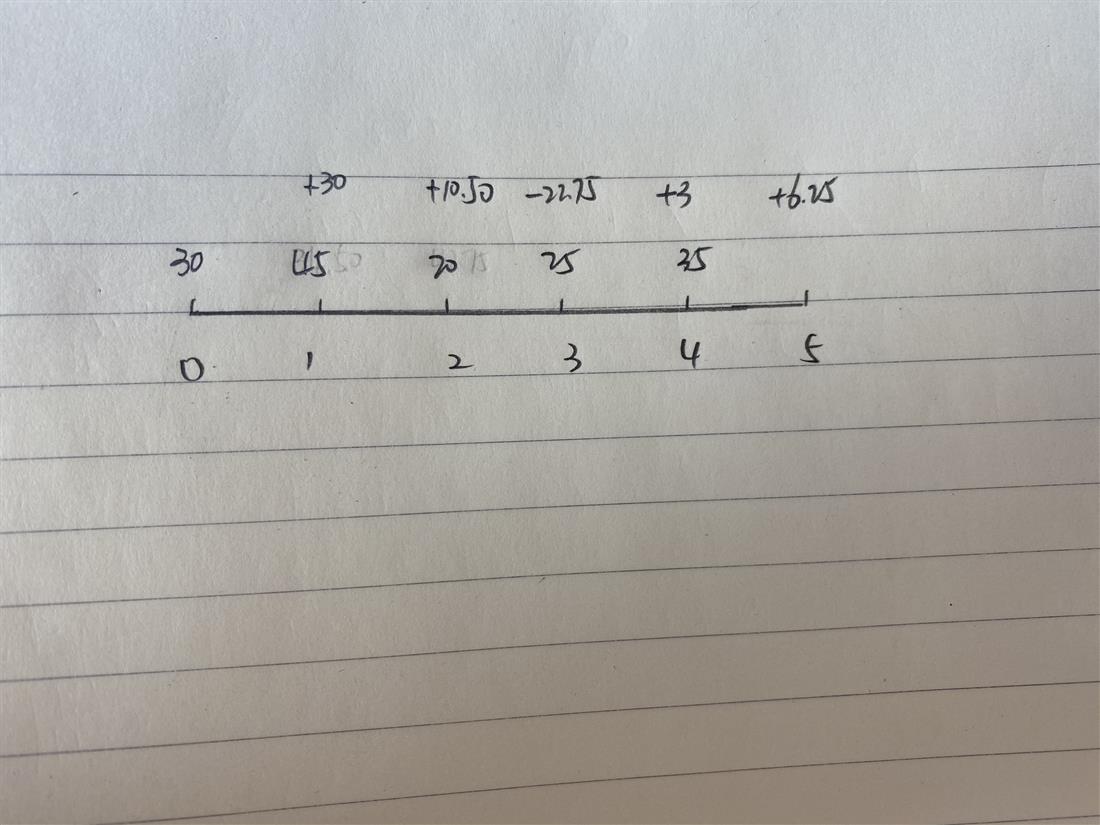 +30 +10.50 -22.75 +3 +6.25
30 45 20 25 35
0 1 2 3 4 5